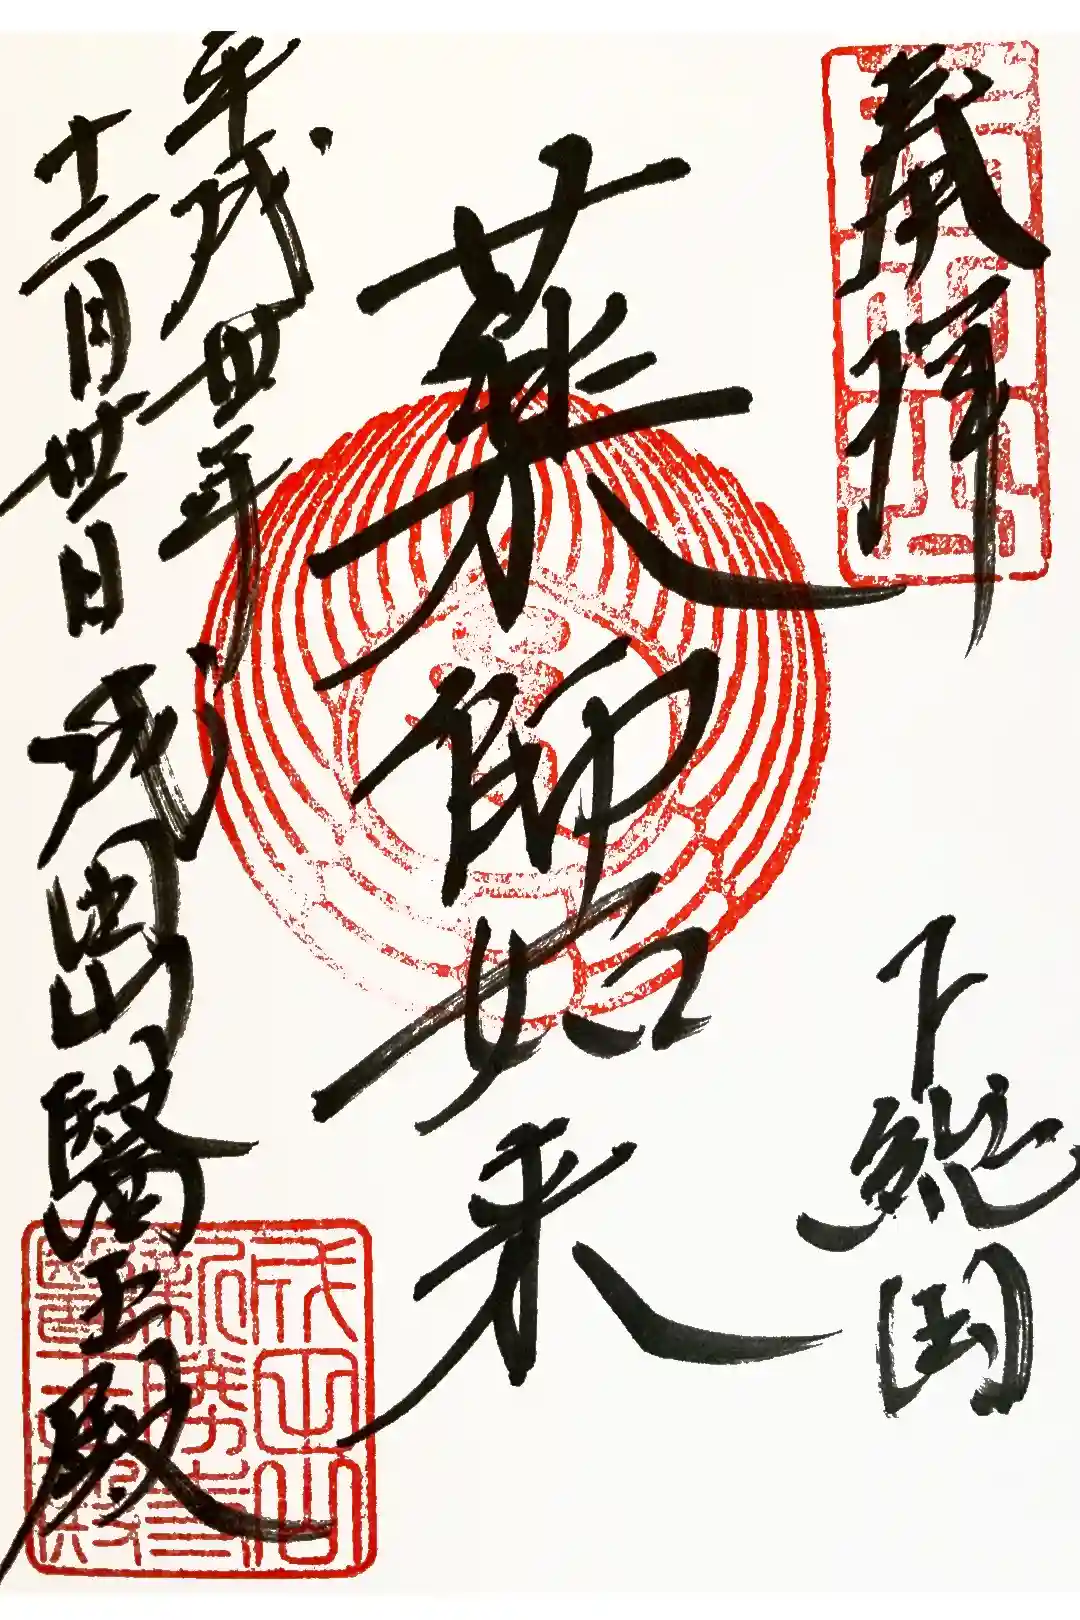 奉拝
下総国
薬師如来
平成丗年
十二月丗日 成田山醫王殿
成田山
新勝寺
醫王殿